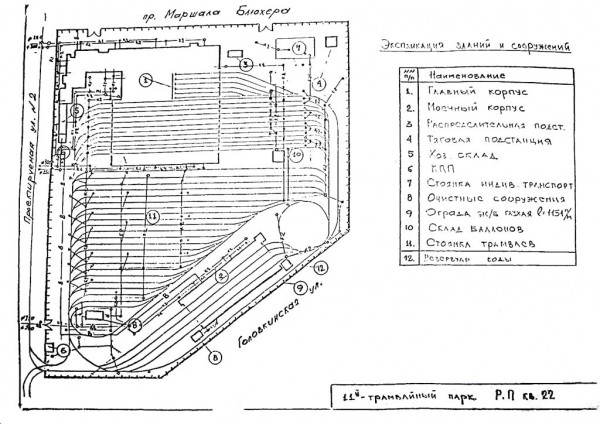 пр. Маршала Блюхера
Проектируемая ул. №2
Головкинская
ул.
Экспликация зданий и сооружений
№№ п/п Наименование
1. Главный корпус
2. Моечный корпус
3. Распределительная подст.
4 Тяговая подстанция
5 Хоз. склад
6 КПП
7 Стоянка индив. транспорт
8 Очистные сооружения
9 Ограда ж/б глухая
10 Склад баллонов
11. Стоянка трамваев
12. Резервуар воды
11й - трамвайный парк Р.П кв. 22